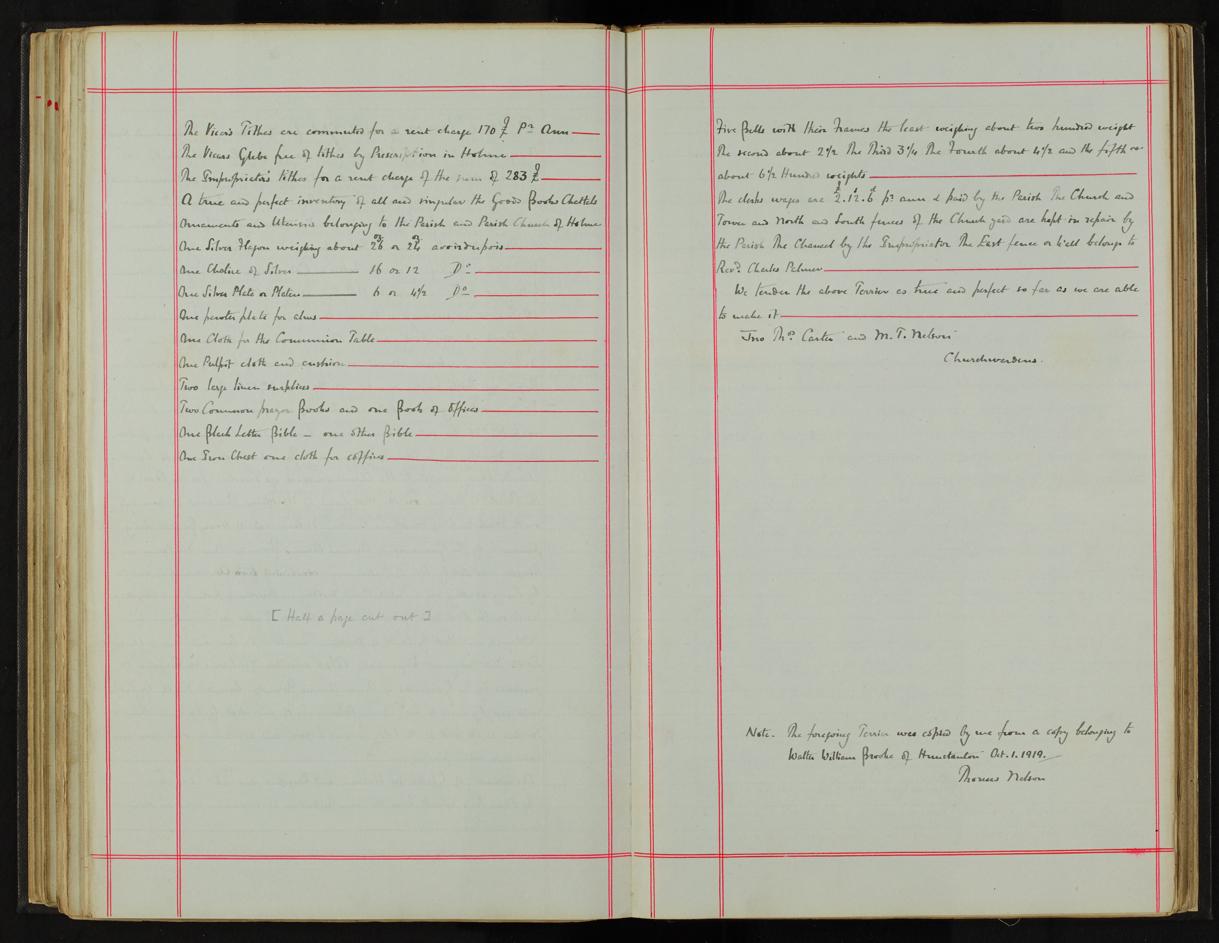 The Vicar's Tithes are commuted for a rent charge 170 £ Pr Ann
The Vicars Glebe free of tithes by Prescription in Holme
The Impropriator's tithes for a rent charge of the sum of 283 £
A true and perfect inventory of all and singular the Goods Books Chattels
Ornaments and Utensils belonging to the Parish and Parish Church of Holme
One Silver Flagon weighing about 26 oz or 24 oz avoirdupois
One Chalice of Silver 16 or 12 Do
One Silver Plate or Platen 6 or 4½ Do
One pewter plate for alms
One Cloth for the Communion Table
One Pulpit cloth and cushion
Two large linen surplices
Two Common prayer Books and one Book of Offices
One Black Letter Bible – one other Bible
One Iron Chest one cloth for coffins
[Half a page cut out]
Five Bells with their Frames the least weighing about two hundred weight
The second about 2½ The Third 3¼ The Fourth about 4½ and the fifth
about 6½ Hundred weights
The clerks wages are £2.12.6 pr ann & paid by the Parish The Church and
Tower and North and South fences of the Church yard are kept in repair by
the Parish The Chancel by the Impropriator The East fence or Wall belongs to
Revd. Charles Palmer
We tender the above Terrier as true and perfect so far as we are able
to make it
Jno Thos. Carter and M. T. Nelson
Churchwardens.
Note. The foregoing Terrier was copied by me from a copy belonging to
Walter William Brooke of Hunstanton Oct. 1. 1919.
Thomas Nelson